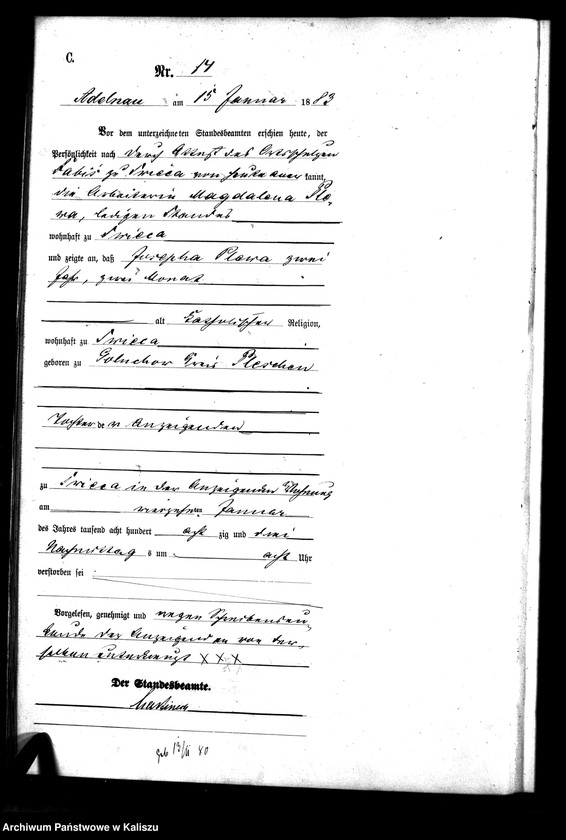 C.
Nr. 14
Adelnau am 15 Januar 1883
Vor dem unterzeichneten Standesbeamten erschien heute, der
Persönlichkeit nach durch Attest des Ortsschulzen
zu von heute anerkannt,
die Arbeiterin Magdalena Ple-
wa, ledigen Standes
wohnhaft zu
und zeigte an, daß Josepha Plewa zwei
Jahr, zwei Monat
alt katholischer Religion,
wohnhaft zu
geboren zu Goluchow Kreis Pleschen
Tochter der Anzeigenden
zu in der Anzeigenden Wohnung
am vierzehnten Januar
des Jahres tausend acht hundert achtzig und drei
Nachmittags um acht Uhr
verstorben sei
Vorgelesen, genehmigt und wegen Schreibensun-
kunde der Anzeigenden von der-
selben unterkreuzt XXX
Der Standesbeamte.
geb 13/II 80
Archiwum Państwowe w Kaliszu